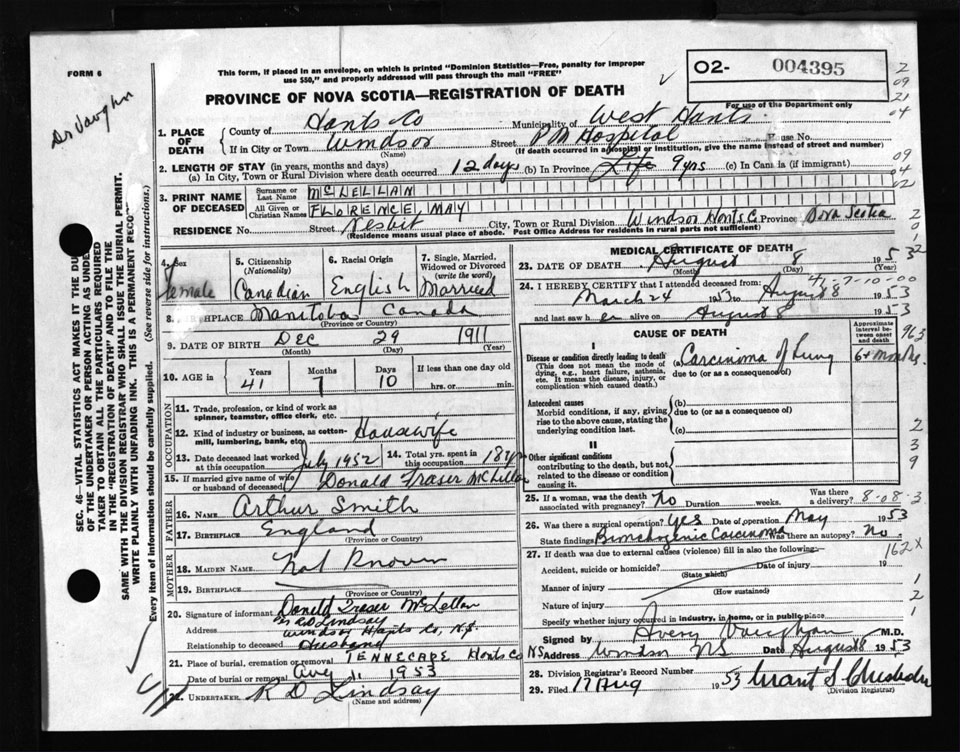 FORM 6
This form, if placed in an envelope, on which is printed "Dominion Statistics—Free, penalty for improper
use $50," and properly addressed will pass through the mail "FREE"
02- 004395
For use of the Department only
Dr Vaughn
PROVINCE OF NOVA SCOTIA—REGISTRATION OF DEATH
1. PLACE OF DEATH
County of Hants Co Municipality of West Hants
If in City or Town Windsor Street P M Hospital House No.
(Name) (If death occurred in a hospital or institution, give the name instead of street and number)
2. LENGTH OF STAY (in years, months and days)
(a) In City, Town or Rural Division where death occurred 12 days (b) In Province Life 9 yrs (c) In Canada (if immigrant)
3. PRINT NAME OF DECEASED
Surname or Last Name McLELLAN
All Given or Christian Names FLORENCE MAY
RESIDENCE No. Street Nesbit City, Town or Rural Division Windsor Hants Co Province Nova Scotia
(Residence means usual place of abode. Post Office Address for residents in rural parts not sufficient)
4. Sex Female
5. Citizenship (Nationality) Canadian
6. Racial Origin English
7. Single, Married, Widowed or Divorced (write the word) Married
8. BIRTHPLACE Manitoba Canada
(Province or Country)
9. DATE OF BIRTH Dec 29 1911
(Month) (Day) (Year)
10. AGE in Years Months Days If less than one day old
41 7 10 hrs. or min.
OCCUPATION
11. Trade, profession, or kind of work as spinner, teamster, office clerk, etc.
12. Kind of industry or business, as cotton-mill, lumbering, bank, etc. Housewife
13. Date deceased last worked at this occupation July 1952
14. Total yrs. spent in this occupation 18 yrs
15. If married give name of wife or husband of deceased Donald Fraser McLellan
FATHER
16. NAME Arthur Smith
17. BIRTHPLACE England
(Province or Country)
MOTHER
18. MAIDEN NAME Not Known
19. BIRTHPLACE
(Province or Country)
20. Signature of informant Donald Fraser McLellan
R D Lindsay
Address Windsor Hants Co, N.S.
Relationship to deceased Husband
21. Place of burial, cremation or removal TENNECAPE Hants Co
Date of burial or removal Aug 11 1953
22. UNDERTAKER R D Lindsay NS
(Name and address)
MEDICAL CERTIFICATE OF DEATH
23. DATE OF DEATH August 8 1953
(Month) (Day) (Year)
24. I HEREBY CERTIFY that I attended deceased from:
March 24 1953 to August 8 1953
and last saw her alive on August 8 1953
41-7-10-00
CAUSE OF DEATH
Approximate interval between onset and death
I
Disease or condition directly leading to death
(This does not mean the mode of dying, e.g., heart failure, asthenia, etc. It means the disease, injury, or complication which caused death.)
(a) Carcinoma of Lung 6+ months
due to (or as a consequence of)
Antecedent causes
Morbid conditions, if any, giving rise to the above cause, stating the underlying condition last.
(b)
due to (or as a consequence of)
(c)
II
Other significant conditions
contributing to the death, but not related to the disease or condition causing it.
25. If a woman, was the death associated with pregnancy? No Duration weeks. Was there a delivery?
8-08-3
26. Was there a surgical operation? yes Date of operation May 1953
State findings Bronchogenic Carcinoma Was there an autopsy? No.
27. If death was due to external causes (violence) fill in also the following—
162X
Accident, suicide or homicide? Date of injury 19
(State which)
Manner of injury
(How sustained)
Nature of injury
Specify whether injury occurred in industry, in home, or in public place
Signed by Avery Vaughan M.D.
Address Windsor NS Date August 8 1953
28. Division Registrar's Record Number
29. Filed 17 Aug 1953
(Division Registrar)
2
09
21
04
09
04
02
2
0
1
2
963
2
3
9
1
2
1
SEC. 46—VITAL STATISTICS ACT MAKES IT THE DU
OF THE UNDERTAKER OR PERSON ACTING AS UNDER
TAKER TO OBTAIN ALL THE PARTICULARS REQUIRED
IN THE "REGISTRATION OF DEATH" AND TO FILE THE
SAME WITH THE DIVISION REGISTRAR WHO SHALL ISSUE THE BURIAL PERMIT.
WRITE PLAINLY WITH UNFADING INK. THIS IS A PERMANENT RECO
Every item of information should be carefully supplied. (See reverse side for instructions.)